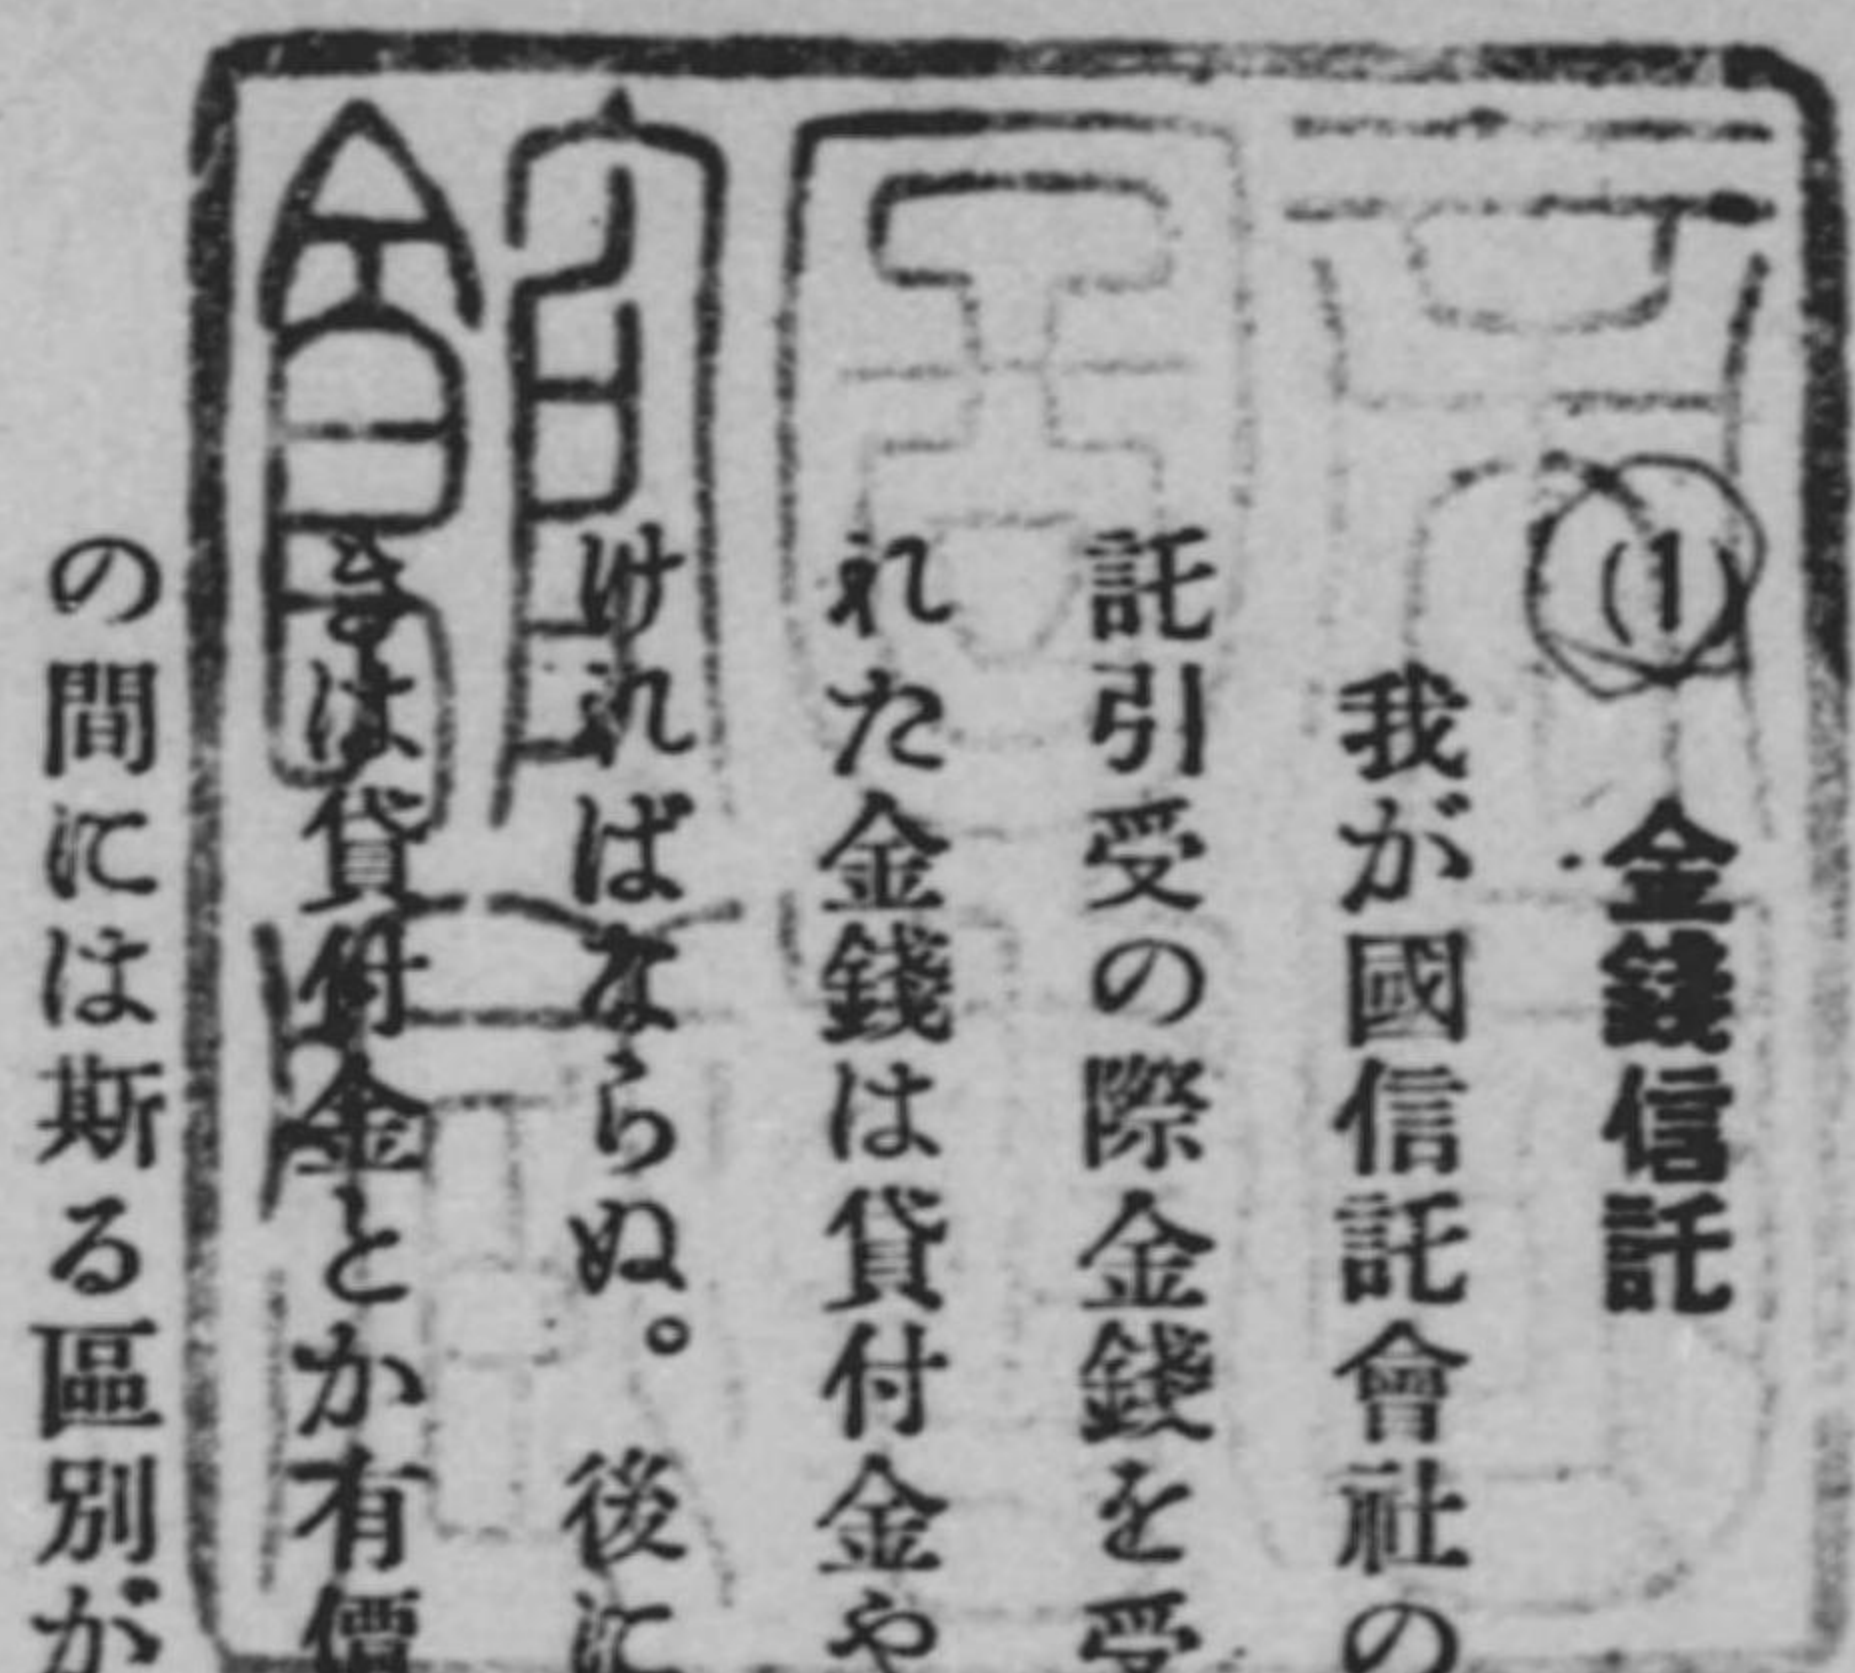 (1) 金錢信託
我が國信託會社の
託引受の際金錢を受
れた金錢は貸付金や
ければならぬ。後に
きは貸付金とか有價
の間には斯る區別が